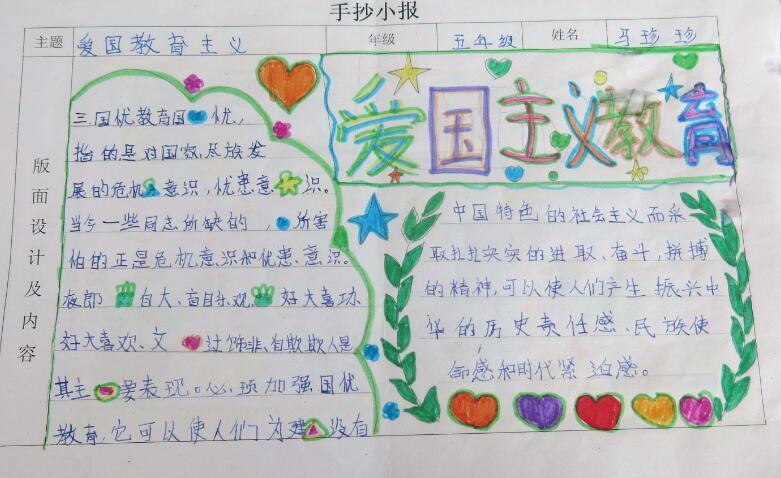 手抄小报
主题 爱国教育主义 年级 五年级 姓名 马珍珍
版面设计及内容
三.国优教育国忧,
指的是对国家.民族发
展的危机意识,忧患意识。
当今一些同志所缺的,所害
怕的正是危机意识和优患、意识。
夜郎自大、盲目乐观、好大喜功
好大喜欢、文过饰非、自欺欺人是
其主要表现。必项加强国优
教育,它可以使人们为建没有
爱国主义教育
中国特色的社会主义而采
取扎扎实实的进取、奋斗,拼搏
的精神,可以使人们产生振兴中
华的历史责任感、民族使
命感和时代紧迫感。